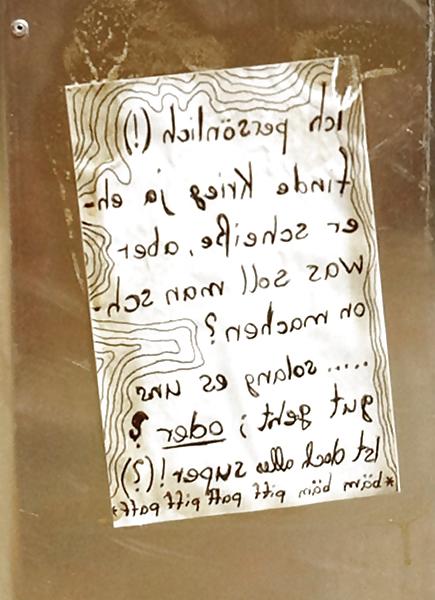 Ich persönlich (!)
finde Krieg ja eh-
er scheiße, aber
was soll man sch-
on machen?
..... solang es uns
gut geht; oder?
Ist doch alles super!(?)
*bäm bäm piff paff piff paff*